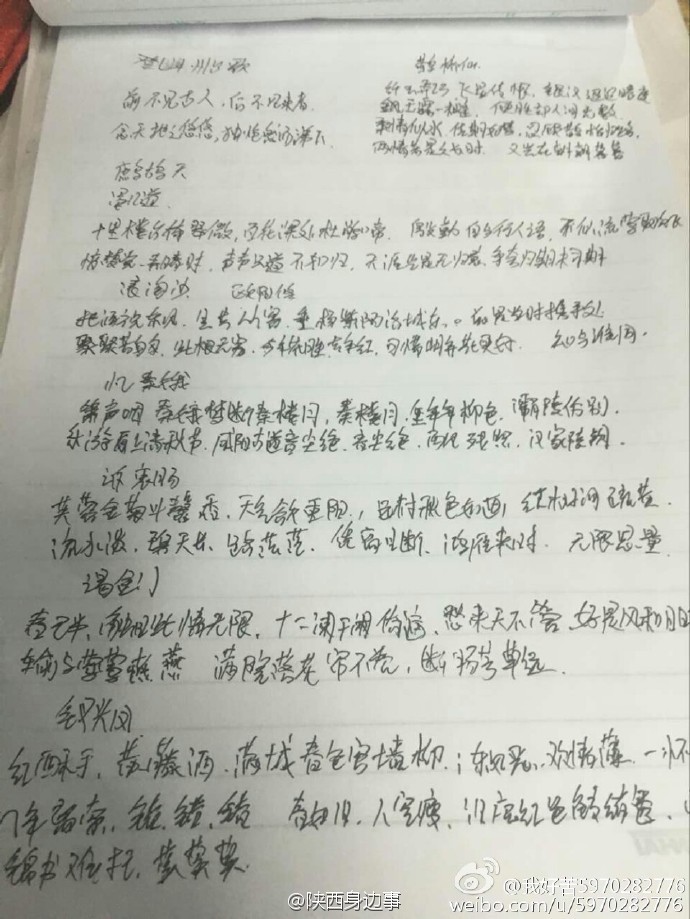 登幽州台歌
前不见古人，后不见来者。
念天地之悠悠，独怆然而涕下
鹊桥仙
纤云弄巧 飞星传恨，银汉迢迢暗度
金风玉露一相逢，便胜却人间无数
柔情似水，佳期如梦，忍顾鹊桥归路，
两情若是久长时 又岂在朝朝暮暮
鹧鸪天
十里楼台倚翠微，百花深处杜鹃啼 殷勤自与行人语，不似流莺取次飞
惊梦觉 弄晴时，声声只道不如归，天涯岂是无归意，争奈归期未可期
浪淘沙 欧阳修
把酒祝东风，且共从容，垂杨紫陌洛城东。总是当时携手处
聚散苦匆匆，此恨无穷，今年花胜去年红，可惜明年花更好 知与谁同
忆秦娥
箫声咽 秦娥梦断秦楼月，秦楼月，年年柳色，灞陵伤别，
乐游原上清秋节，咸阳古道音尘绝，音尘绝，西风残照，汉家陵阙
诉衷肠
芙蓉金菊斗馨香，天气欲重阳，远村秋色如画，红树间疏黄
流水淡，碧天长，路茫茫，凭高目断，鸿雁来时 无限思量
谒金门
春已半，触目此情无限，十二阑干闲倚遍，愁来天不管 好是风和日
输与莺莺燕燕 满院落花帘不卷，断肠芳草远
钗头凤
红酥手，黄藤酒，满城春色宫墙柳，东风恶，欢情薄 一怀
错，错，错 春如旧，人空瘦，泪痕红浥鲛绡透，
锦书难托，莫莫莫
@陕西身边事
@我好苦5970282776
weibo.com/u/5970282776